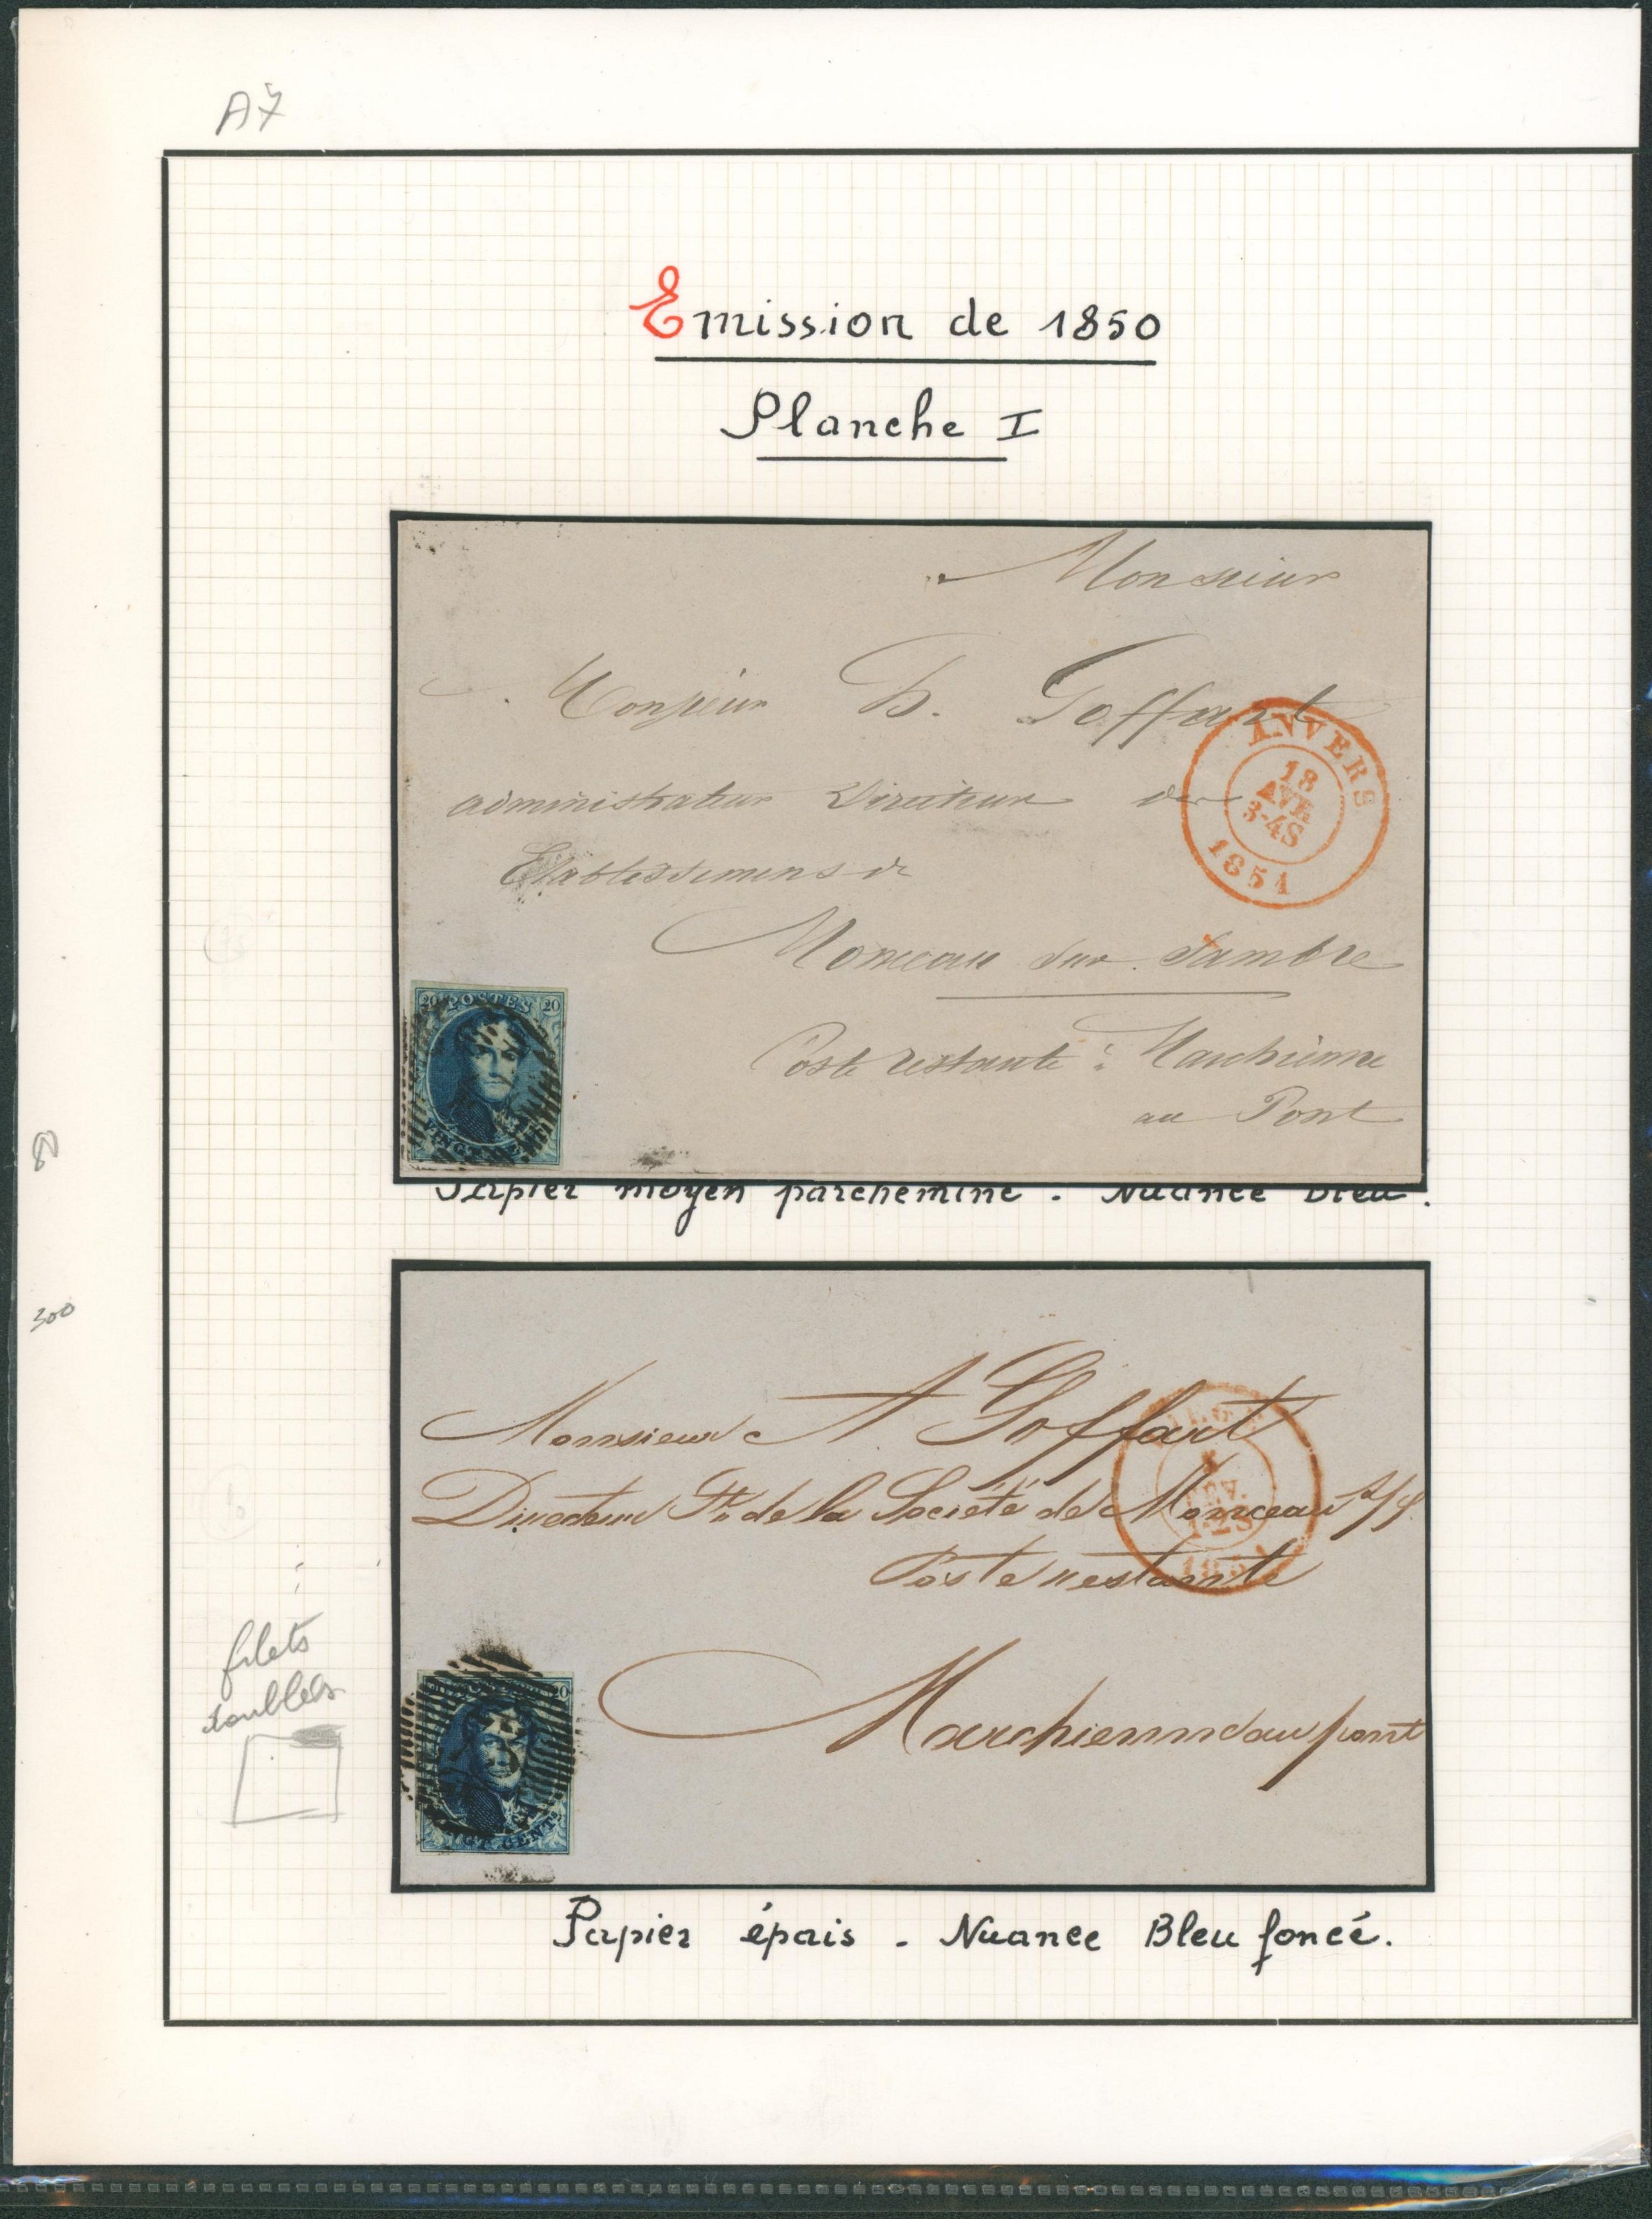 A7
Emission de 1850
Planche I
Monsieur
Monsieur B. Goffart
administrateur Directeur des
Etablissemens de
Monceau sur Sambre
Poste restante à Marchienne
au Pont
ANVERS
18
AVR
3-4S
1851
20 POSTES 20
VINGT
Papier moyen parcheminé - Nuance Bleu.
80
300
Monsieur A Goffart
Directeur Gt de la Société de Monceau s/S
Poste restante
Marchienne au pont
1851
20
CENTS
filets
doubles
Papier épais - Nuance Bleu foncé.